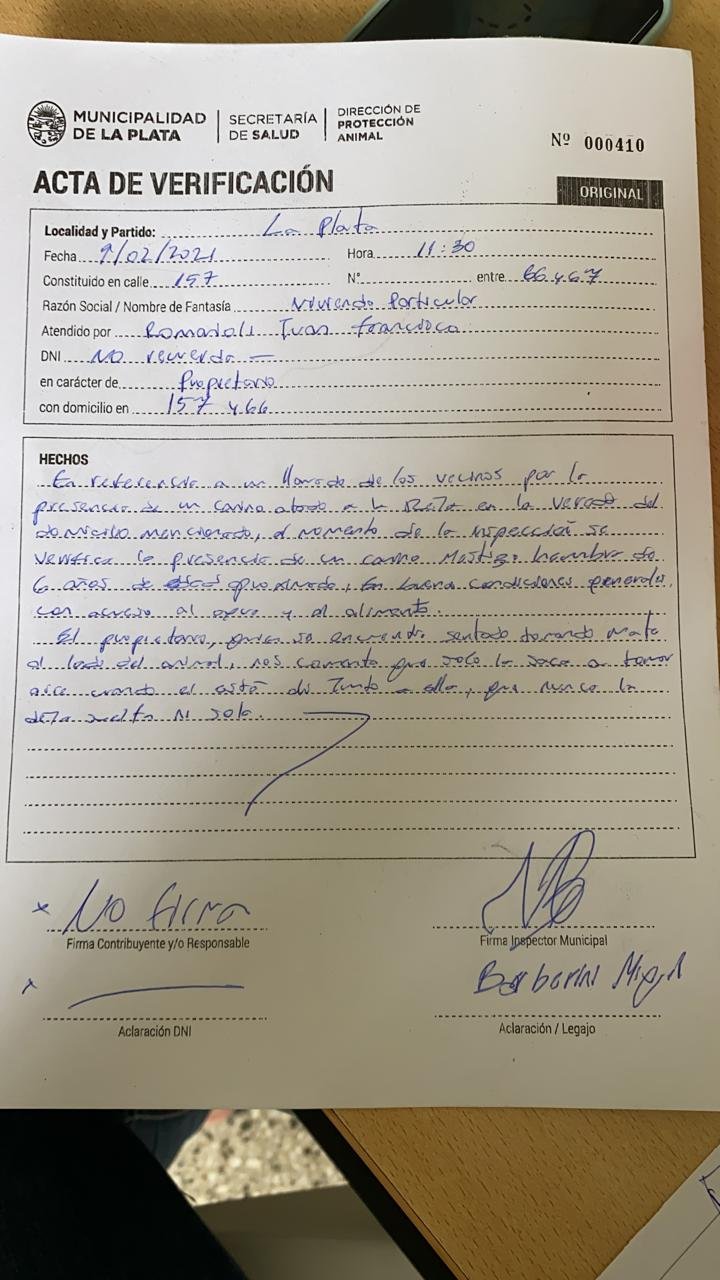 MUNICIPALIDAD DE LA PLATA
SECRETARÍA DE SALUD
DIRECCIÓN DE PROTECCIÓN ANIMAL
Nº 000410
ACTA DE VERIFICACIÓN
ORIGINAL
Localidad y Partido: La Plata
Fecha 9/02/2021 Hora 11:30
Constituido en calle 157 N° entre 66 y 67
Razón Social / Nombre de Fantasía Vivienda Particular
Atendido por Juan Francisco
DNI No recuerda —
en carácter de Propietario
con domicilio en 157 y 66
HECHOS
En referencia a un llamado de los vecinos por la
presencia de un canino atado a la Reja en la vereda del
domicilio mencionado, al momento de la inspección se
verifica la presencia de un canino Mestizo hembra de
6 años de edad aproximada, En buena condiciones generales,
con acceso al agua y al alimento.
El propietario, quien se encuentra sentado tomando mate
al lado del animal, nos comenta que solo la saca a tomar
aire cuando el está ahí Junto a ella, que nunca la
deja suelta ni sola.
x No firma
Firma Contribuyente y/o Responsable
Firma Inspector Municipal
x
Barbarini Miguel
Aclaración DNI
Aclaración / Legajo